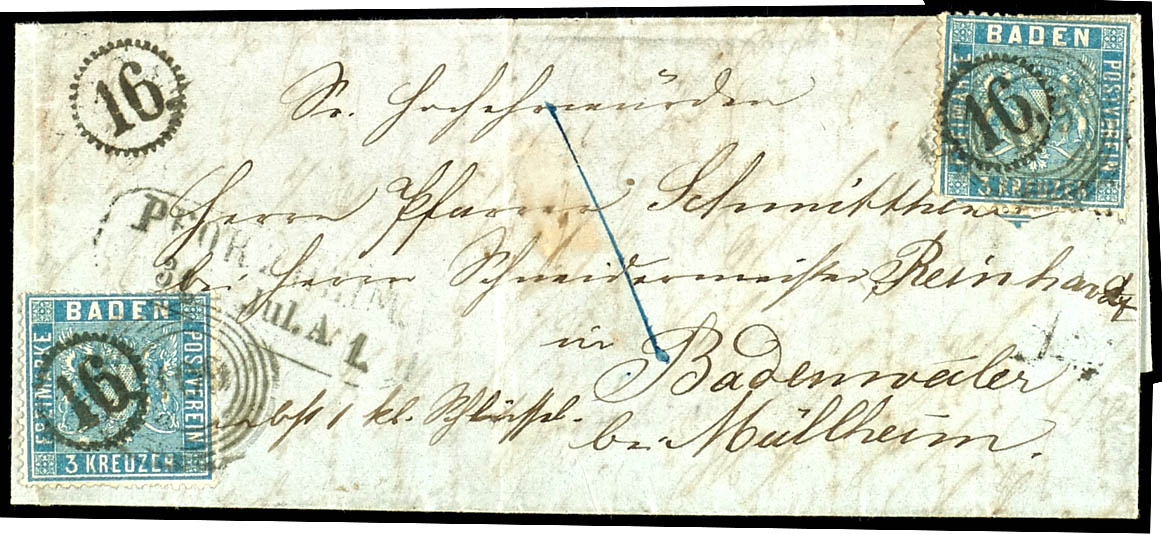 16
BADEN
FREIMARKE
POSTVEREIN
16
3 KREUZER
Sr. Hochehrwürden
Herrn Pfarrer Schmitthenner
PFORZHEIM.
30 Jul. A. 1.
bei Herrn Schneidermeister Reinhardt
in
Badenweiler
nebst 1 kl. Schlüssel.
bei Müllheim.
BADEN
FREIMARKE
POSTVEREIN
16
3 KREUZER